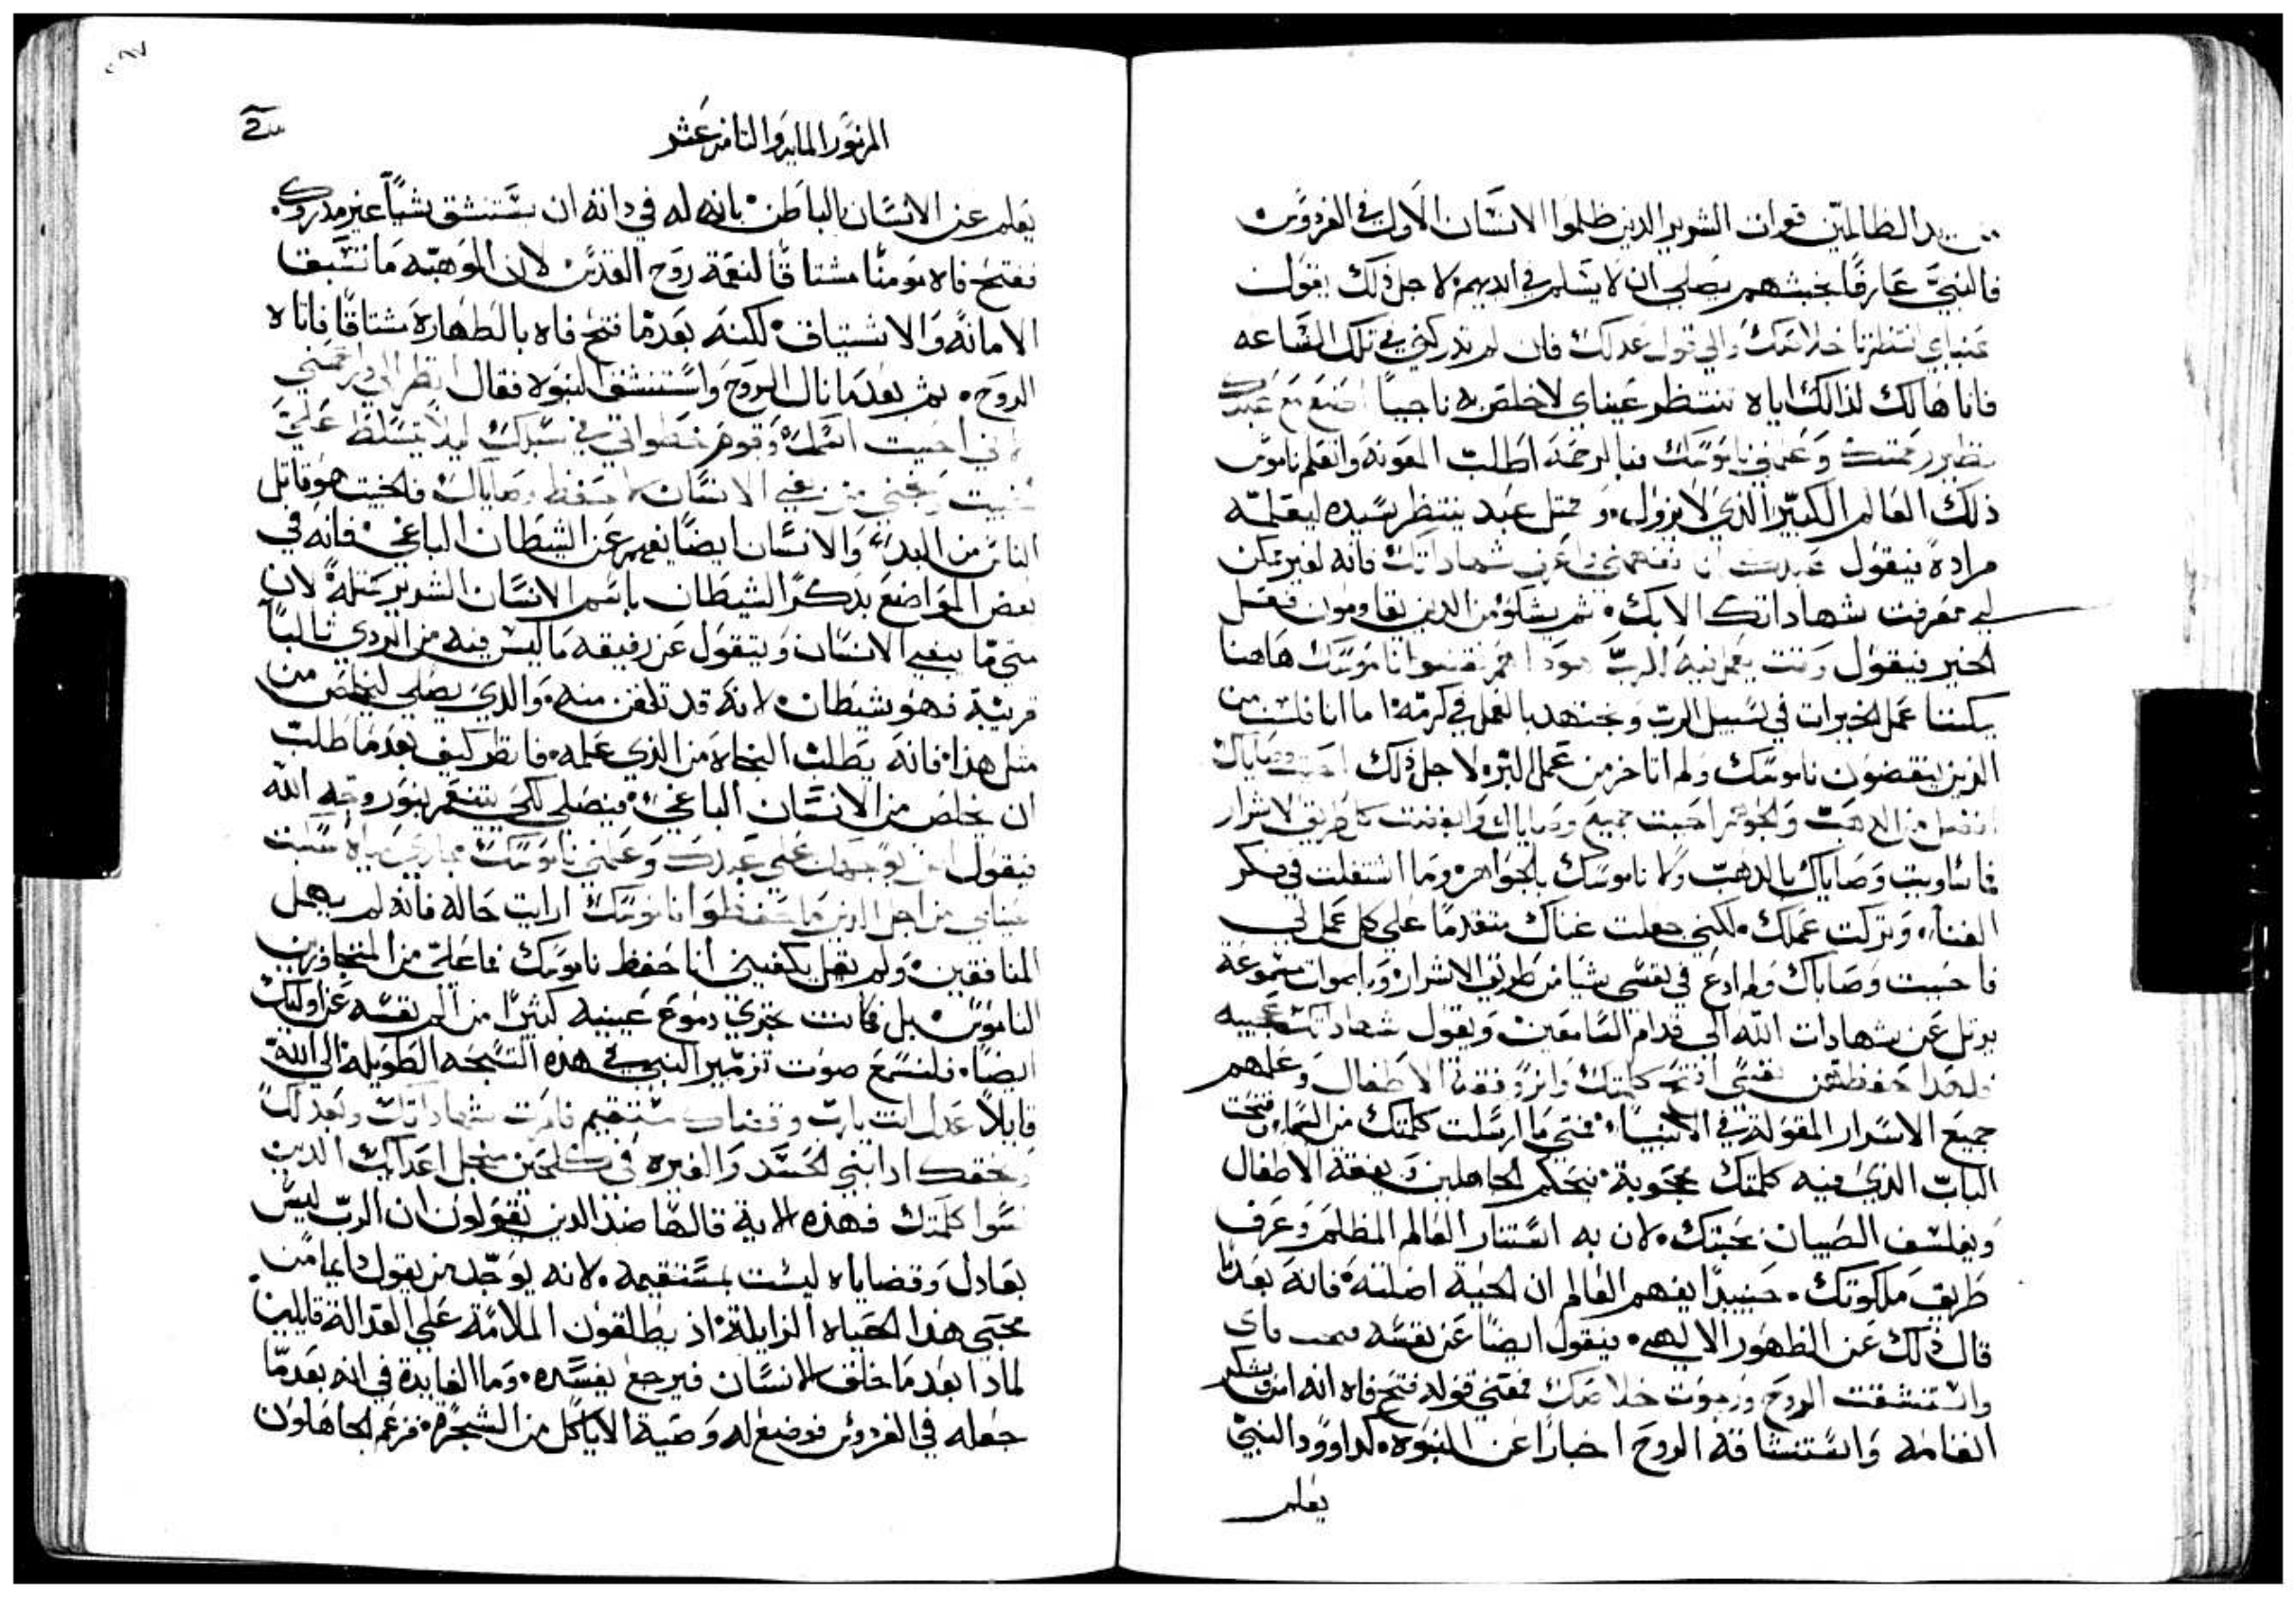 من يد الظالمين قوات الشرير الذين ظلموا الانسان الاول في الفردوس
فالنبي عارفًا بخبثهم يصلي ان لا يسلم في ايديهم لاجل ذلك يقول
عيناي انتظرتا خلاصك والي قول عدلك فان لم تدركني في تلك الساعه
فانا هالك لذالك اياه تنتظر عيناي لاخلص به ناجيًا اصنع مع عبدك
نظير رحمتك وعلمني ناموسك فبالرحمه اطلب المعونه واتعلم ناموس
ذلك العالم الكبير الذي لا يزول. ومثل عبد ينتظر سيده ليعلمه
مراده فيقول عبدك انا فهمني فاعرف شهاداتك فانه لغير ممكن
لي معرفت شهاداتك الا بك. ثم يشكو من الذين يقاومون فعل
الخير فيقول وقت يعمل فيه الرب هودا هم نقضوا ناموسك هاهنا
يمكننا عمل الخيرات في سبيل الرب ونجتهد بالعمل في كرمه اما انا فلست من
الذين ينقضون ناموسك ولم اتاخر من عمل البر لاجل ذلك احببت وصاياك
افضل من الذهب والجوهر احببت جميع وصاياك وابغضت كل طريق الاشرار
فما ساويت وصاياك بالذهب ولا ناموسك بالجواهر وما اشتغلت في فكر
الغناء. وتركت عملك. لكنني جعلت غناك متقدمًا علي كل عمل لي
فاحببت وصاياك ولم ادع في نفسي شيا من طريق الاشرار وباصوات مسموعة
يرتل عن شهادات الله الي قدام السامعين ويقول شهاداتك عجيبه
فلهدا حفظتهن نفسي افتح كلمتك وانر وفقه الاطفال وعلمهم
جميع الاسرار المقولة في الانبياء. فمتي ما ارسلت كلمتك من السماء وفتحت
الباب الذي فيه كلمتك محجوبة فتحكم الجاهلين ويفقه الاطفال
ويفلسف الصبيان بمحبتك. لان به استنار العالم المظلم وعرف
طريق ملكوتك. حينيدًا يفهم العالم ان الحية اضلته فانه بعدما
قال ذلك عن الظهور الالهي. فيقول ايضًا عن نفسه فتحت فاي
واستنشقت الروح ورجوت خلاصك فمعني قوله فتح فاه انه امر بشكر
الغامه واستنشاقه الروح اخبارًا عن النبوه. كداوود النبي
يعلم
المزمور المايه والثامن عشر
يعلم عن الانسان الباطن. بانه له في داته ان يستنشق شيًا غير مدروك.
ففتح فاه مومنًا مشتاقًا لنعمة روح القدس لان الموهبه ما تسبق
الامانه والاشتياق. لكنه بعدما فتح فاه بالطهارة مشتاقًا فاتاه
الروح. ثم بعدما نال الروح واستنشق النبوه فقال انظر الي وارحمني
لاني احببت اسمك وقوم خطواتي في سبلك ليلا يتسلط علي
الخبيث ونجني من بغي الانسان لاحفظ وصاياك فالخبيث هو قاتل
الناس من البدء والانسان ايضًا يفهم عن الشيطان الباغي. فانه في
بعض المواضع يدكر الشيطان باسم الانسان الشرير مثله لان
متي ما يبغي الانسان ويتقول عن رفيقه ما ليس فيه من الردي ثالبًا
قريبه فهو شيطان. لانه قد تلقن منه. والذي يصلي ليخلص من
مثل هذا. فانه يطلب النجاه من الذي عمله. فانظر كيف بعدما طلب
ان يخلص من الانسان الباغي. فيصلي لكي يتنعم بنور وجه الله
فيقول اضي بوجهك علي عبدك وعلمني ناموسك مجاري مياه هبطت
عيناي من اجل الدين ما حفظوا ناموسك ارايت حاله فانه لم يهمل
المنافقين. ولم يقل يكفيني انا حفظ ناموسك فما علي من المتجاوزين
الناموس. بل فكانت تجري دموع عينيه كثيرًا من الم نفسه عن اوليك
ايضًا. فلنسمع صوت تزمير النبي في هذه التسبحه الطويله الي الله
قايلاً عادل انت يارب وقضاك مستقيم فامرت بشهاداتك وبعدلك
وبحقك ادابني الحسد والغيره في كل حين من اجل اعدايك الدين
نسوا كلمتك فهذه الاية قالها ضد الدين يقولون ان الرب ليس
بعادل وقضاياه ليست بمستقيمه. لانه يوجد من يقول دايما من
محبي هذا الحياه الزايلة اذ يطلقون الملامة علي العدالة قايلين
لمادا بعدما خلق الانسان فيرجع يفسده. وما الفايدة في انه بعدما
جعله في الفردوس فوضع له وصية الا ياكل من الشجرة. فزعم الجاهلون